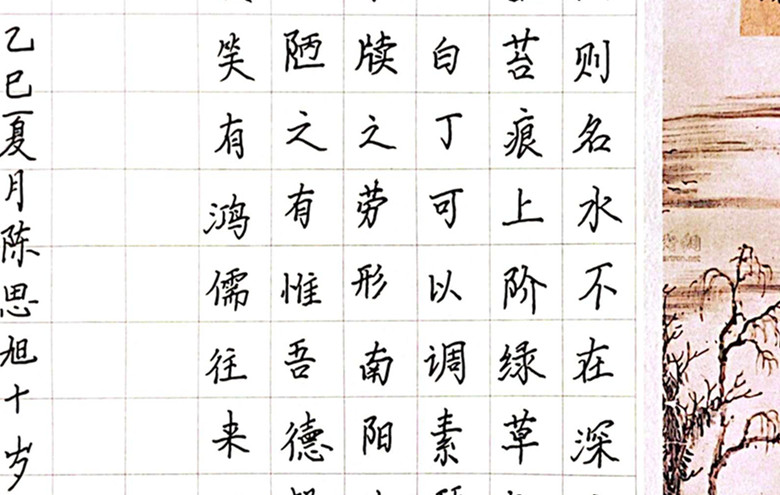 则名水不在深
苔痕上阶绿草
白丁可以调素
牍之劳形南阳
陋之有惟吾德
笑有鸿儒往来
乙巳夏月陈思旭十岁